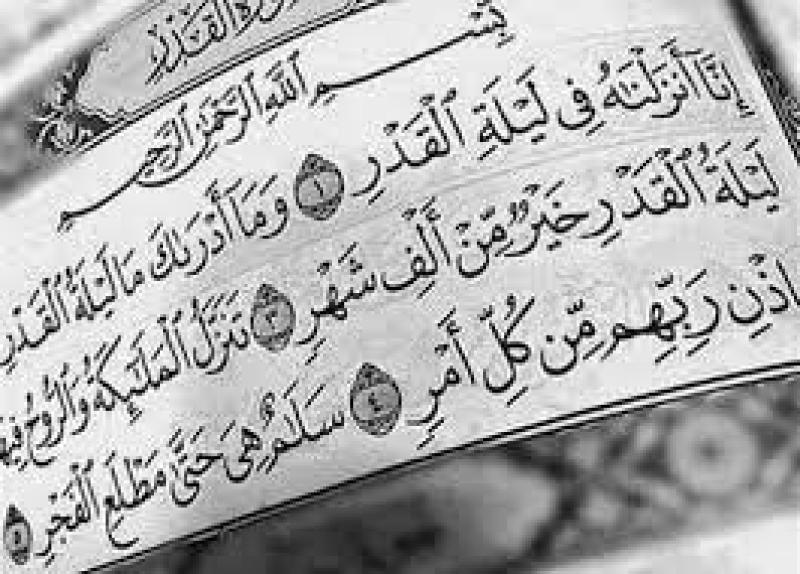 سُورَةُ القَدْرِ
بِسْمِ اللَّهِ الرَّحْمَٰنِ الرَّحِيمِ
إِنَّا أَنزَلْنَٰهُ فِى لَيْلَةِ ٱلْقَدْرِ ١ وَمَا أَدْرَىٰكَ مَا لَيْلَةُ ٱلْقَدْرِ
لَيْلَةُ ٱلْقَدْرِ خَيْرٌ مِّنْ أَلْفِ شَهْرٍ ٣ تَنَزَّلُ ٱلْمَلَٰٓئِكَةُ وَٱلرُّوحُ فِيهَا
إِذْنِ رَبِّهِم مِّن كُلِّ أَمْرٍ ٤ سَلَٰمٌ هِىَ حَتَّىٰ مَطْلَعِ ٱلْفَجْرِ ٥